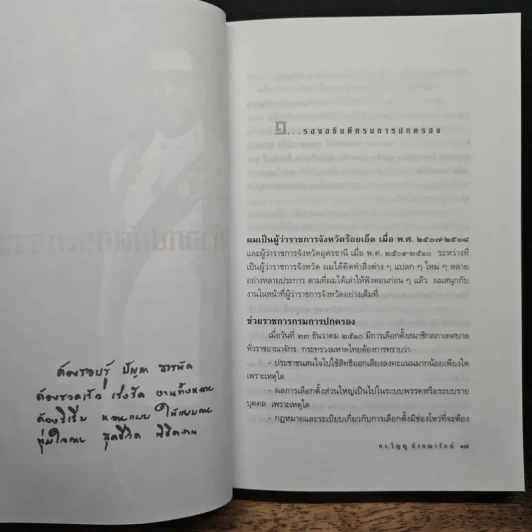 ต้องรอบรู้ ปัญหา สารพัด
ต้องรวดเร็ว เร่งรัด งานทั้งหลาย
ต้องริเริ่ม หลายแบบ
ทุ่มใจกาย สุดชีวิต พิชิตงาน
๑...รองอธิบดีกรมการปกครอง
ผมเป็นผู้ว่าราชการจังหวัดร้อยเอ็ด เมื่อ พ.ศ. ๒๕๐๗-๒๕๐๘
และผู้ว่าราชการจังหวัดอุดรธานี เมื่อ พ.ศ. ๒๕๐๙-๒๕๑๐ ระหว่างที่
เป็นผู้ว่าราชการจังหวัด ผมได้คิดทำสิ่งต่าง ๆ แปลก ๆ ใหม่ ๆ หลาย
อย่างหลายประการ ตามที่ผมได้เล่าให้ฟังตอนก่อน ๆ แล้ว ผมสนุกกับ
งานในหน้าที่ผู้ว่าราชการจังหวัดอย่างเต็มที่
ช่วยราชการกรมการปกครอง
เมื่อวันที่ ๒๓ ธันวาคม ๒๕๑๐ มีการเลือกตั้งสมาชิกสภาเทศบาล
ทั่วราชอาณาจักร กระทรวงมหาดไทยต้องการทราบว่า
- ประชาชนสนใจไปใช้สิทธิออกเสียงลงคะแนนมากน้อยเพียงใด
เพราะเหตุใด
- ผลการเลือกตั้งส่วนใหญ่เป็นไปในระบบพรรคหรือระบบราย
บุคคล เพราะเหตุใด
- กฎหมายและระเบียบเกี่ยวกับการเลือกตั้งมีช่องโหว่ที่จะต้อง
ดร.วิญญู อังคณารักษ์